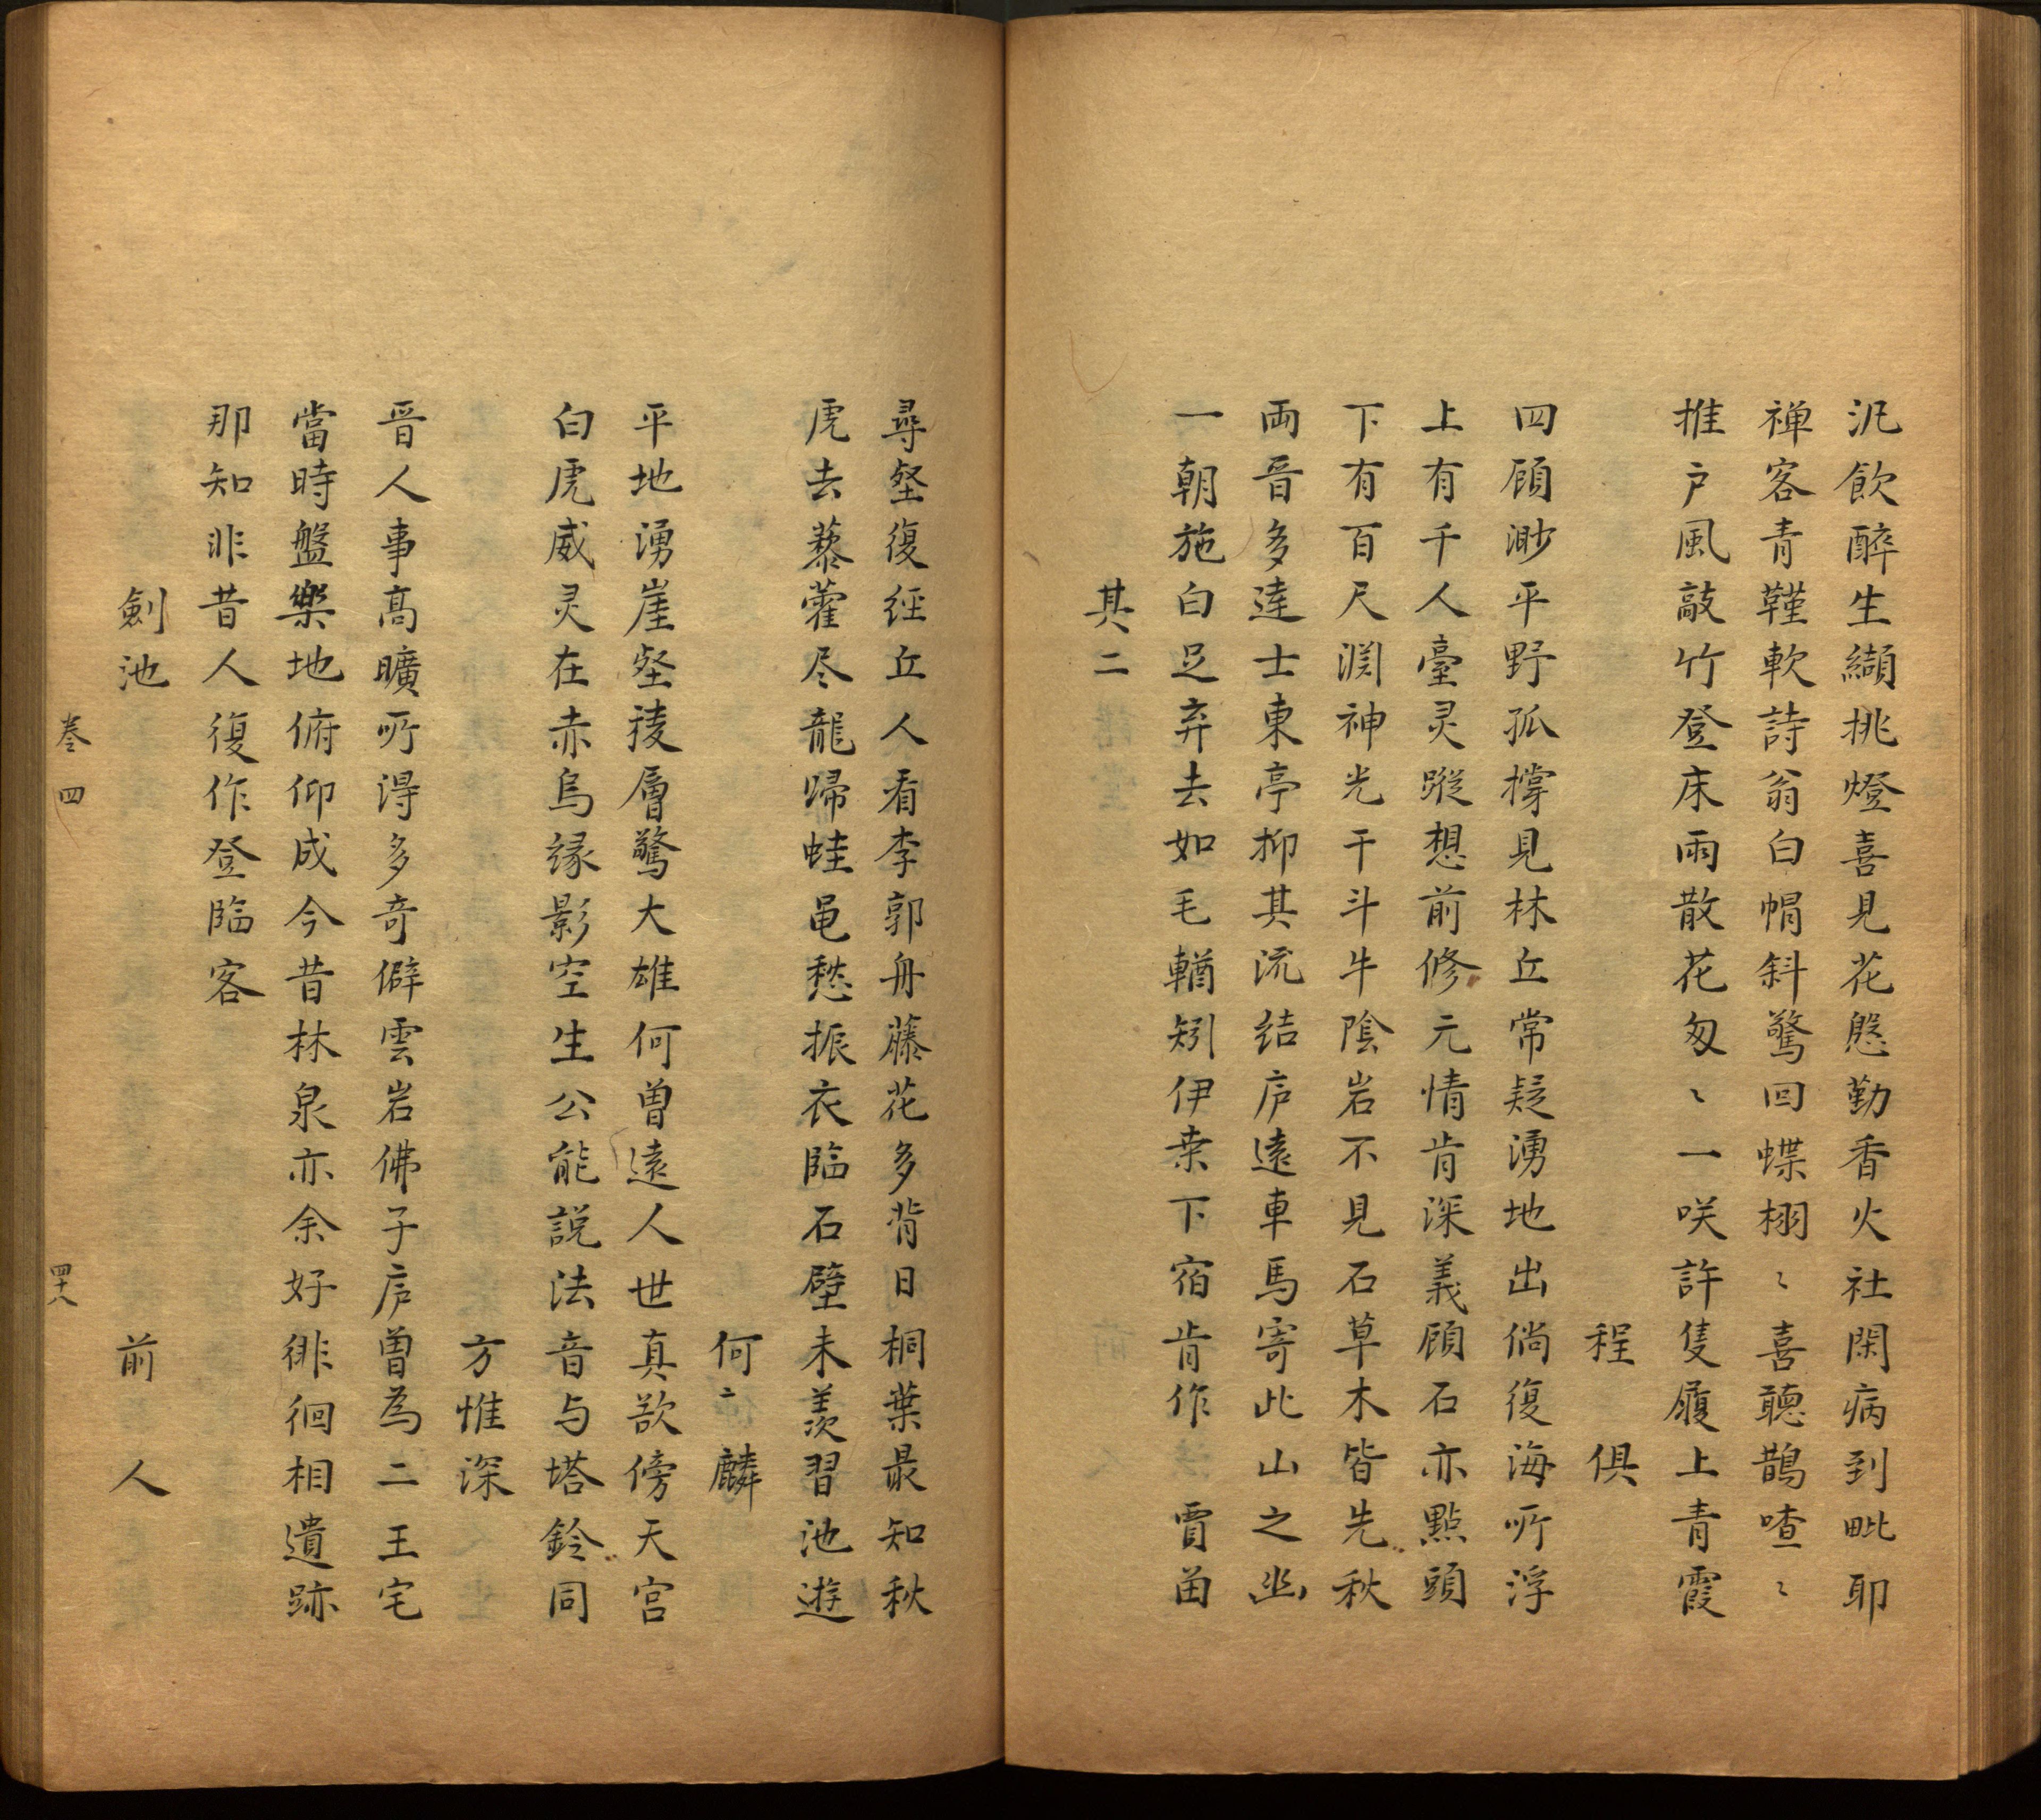 汎飲醉生纈挑燈喜見花慇勤香火社閑病到毗耶
禅客青鞋軟詩翁白帽斜驚回蝶栩〻喜聽鵲喳〻
推戸風敲竹登床雨散花匆〻一咲許隻履上青霞
程俱
四顧渺平野孤撐見林丘常疑湧地出倘復海所浮
上有千人臺灵蹤想前修元情肯深義頑石亦點頭
下有百尺渊神光干斗牛陰岩不見石草木皆先秋
両晋多逹士東亭抑其流结庐遠車馬寄此山之幽
一朝施白足弃去如毛輶矧伊桒下宿肯作賈留
其二
尋壑復経丘人看李郭舟藤花多背日桐葉最知秋
虎去藜藿尽龍歸蛙黾愁振衣臨石壁未羡習池遊
何麟
平地湧崖壑稜層驚大雄何曽遠人世真欲傍天宫
白虎威灵在赤烏緣影空生公能説法音与塔鈴同
方惟深
晋人事髙曠所得多奇僻雲岩佛子庐曽為二王宅
當時盤樂地俯仰成今昔林泉亦余好徘徊相遺跡
那知非昔人復作登臨客
劍池 前人
卷四 四十八